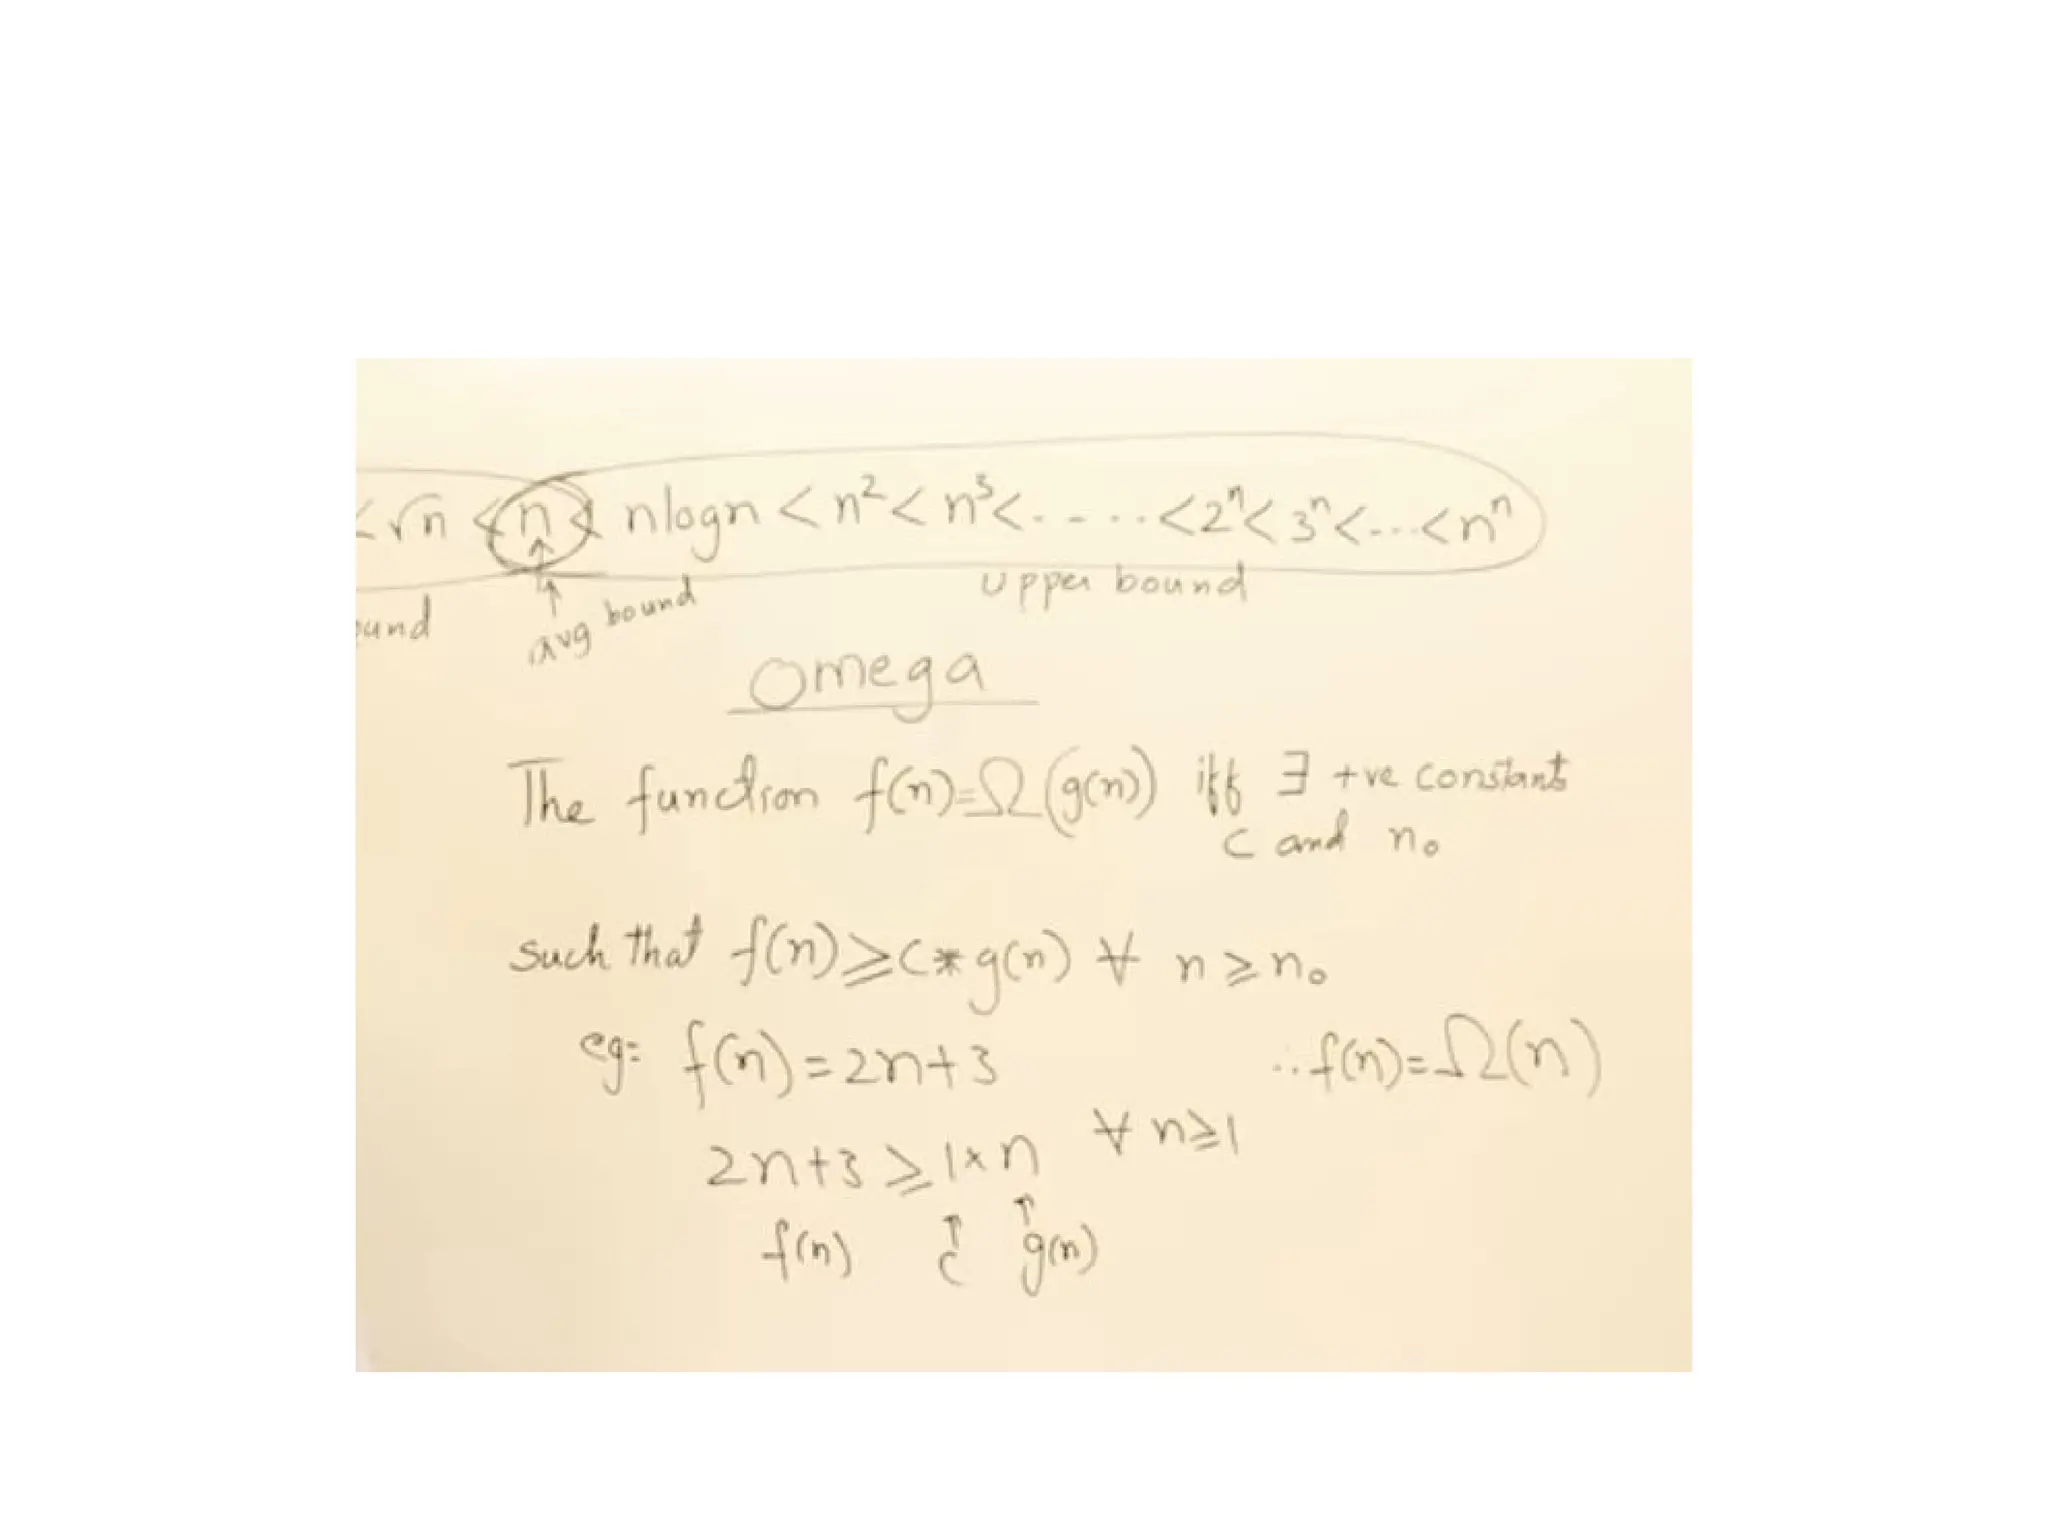 <√n < n < nlogn < n² < n³ < - - - .. < 2ⁿ < 3ⁿ < ... < nⁿ
bound Upper bound
avg
omega
The function f(n)=Ω(g(n)) iff ∃ +ve constants
c and n₀
such that f(n) ≥ c*g(n) ∀ n ≥ n₀
eg: f(n)=2n+3 ∴ f(n)=Ω(n)
2n+3 ≥ 1×n ∀ n≥1
↑ ↑
f(n) c g(n)